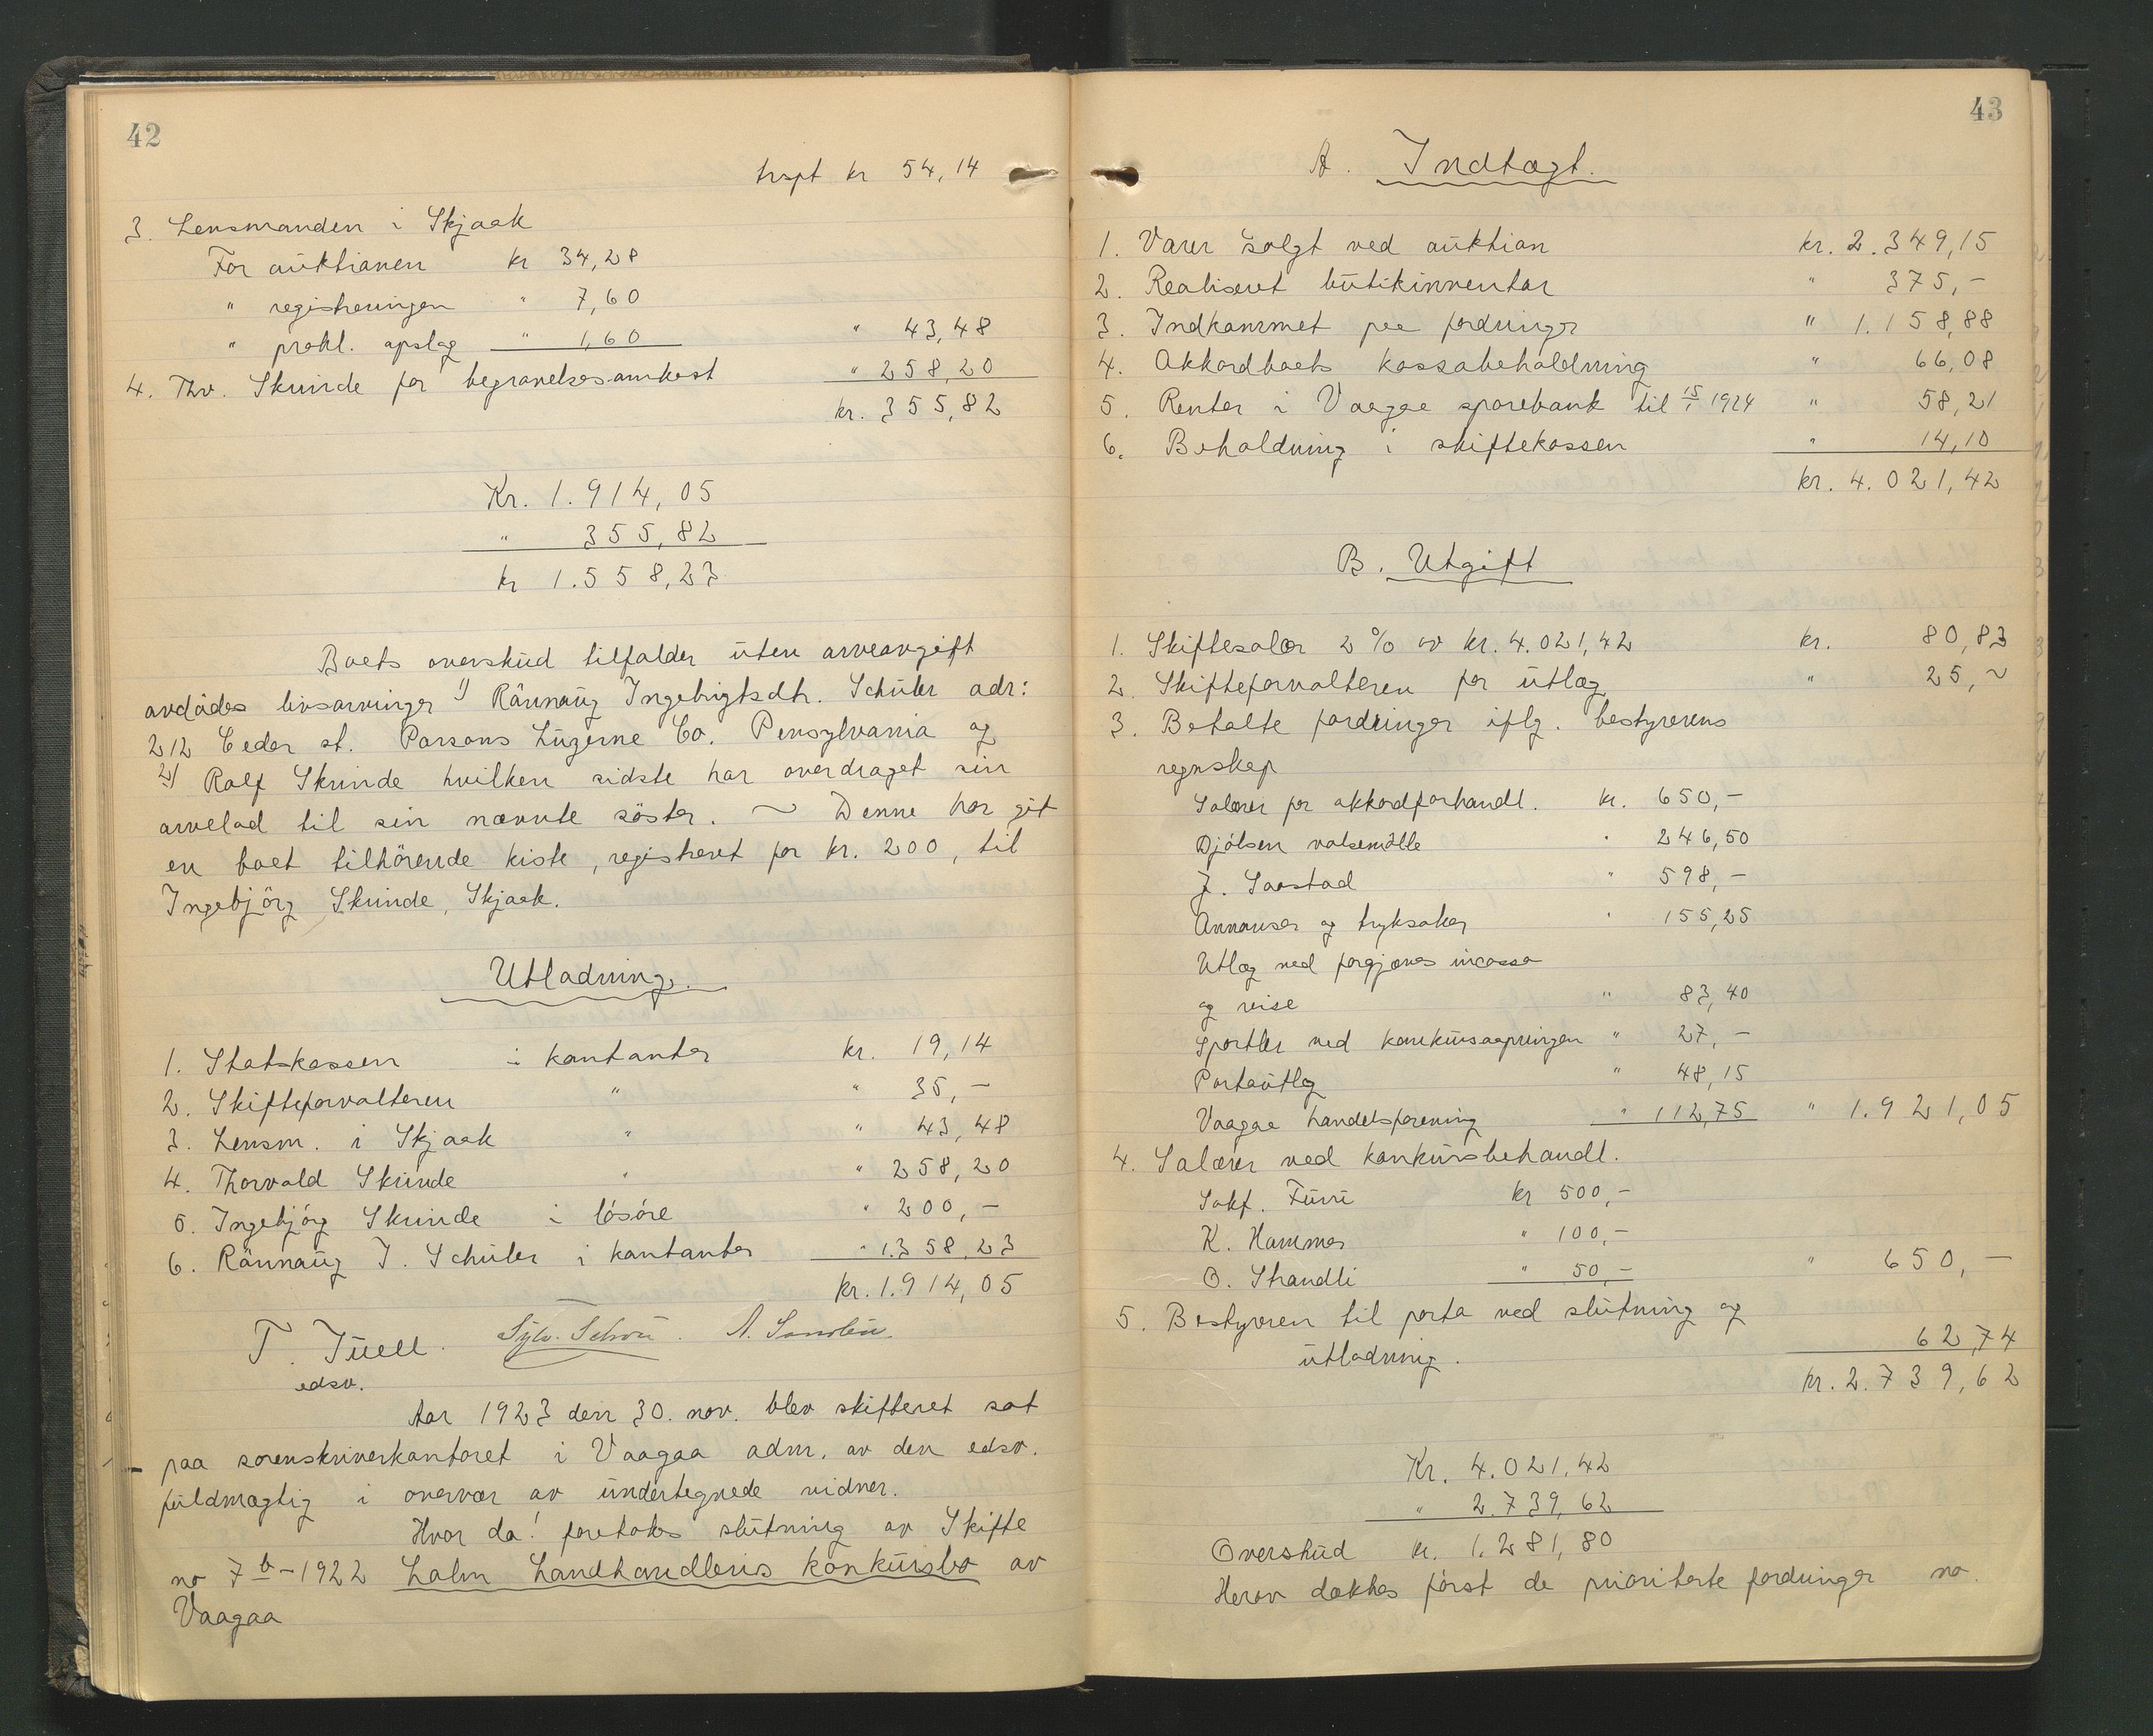 42
trspt kr 54,14
3. Lensmanden i Skjaak
For auktionen kr 34,28
" registreringen " 7,60
" prokl. opslag " 1,60 " 43,48
4. Thv. Skunde for begravelsesomkost " 258,20
kr. 355,82
Kr. 1.914,05
" 355,82
kr 1.558,23
Boets overskud tilfalder uten arveavgift
avdødes livsarvinger 1) Rønnaug Ingebrigtsdtr. Schuler adr:
212 Ceder st. Parsons Luzerne Co. Pensylvania og
2) Rolf Skunde hvilken sidste har overdraget sin
arvelod til sin nævnte søster. ~ Denne har git
en boet tilhørende kiste, registreret for kr. 200, til
Ingebjørg Skunde, Skjaak.
Utlodning.
1. Statskassen i kontanter kr. 19,14
2. Skifteforvalteren " " 35,-
3. Lensm. i Skjaak " " 43,48
4. Thorvald Skunde " " 258,20
5. Ingebjørg Skunde i løsøre " 200,-
6. Rønnaug I. Schuler i kontanter " 1.358,23
kr. 1.914,05
T. Juell. Sylv. Schou. A. Sandbu.
edsv.
Aar 1923 den 30. nov. blev skifteret sat
paa sorenskriverkontoret i Vaagaa adm. av den edsv.
fuldmægtig i overvær av undertegnede vidner.
Hvor da! foretokes slutning av Skifte
no 7b-1922 Lalm Landhandleris konkursbo av
Vaagaa
43
A. Indtægt.
1. Varer solgt ved auktion kr. 2.349,15
2. Realiseret butikinventar " 375,-
3. Indkommet paa fordringer " 1.158,88
4. Akkordboets kassabeholdning " 66,08
5. Renter i Vaagaa sparebank til 15/1 1924 " 58,21
6. Beholdning i skiftekassen " 14,10
kr. 4.021,42
B. Utgift
1. Skiftesalær 2 % av kr. 4.021,42 kr. 80,83
2. Skifteforvalteren for utlæg " 25,~
3. Betalte fordringer iflg. bestyrerens
regnskap
Salærer for akkordforhandl. kr. 650,-
Djølsen valsemølle " 246,50
J. Saastad " 598,-
Annonser og tryksaker " 155,25
Utlæg ved forgjæves incasso
og reise " 83,40
Sportler ved konkursaapningen " 27,-
Portoutlæg " 48,15
Vaagaa handelsforening " 112,75 " 1.921,05
4. Salærer ved konkursbehandl.
Sakf. Furu kr 500,-
K. Hammer " 100,-
O. Strandli " 50,- " 650,-
5. Bestyreren til porto ved slutning og
utlodning. 62,74
kr. 2.739,62
Kr. 4.021,42
" 2.739,62
Overskud kr. 1.281,80
Herav dækkes først de prioriterte fordringer no.